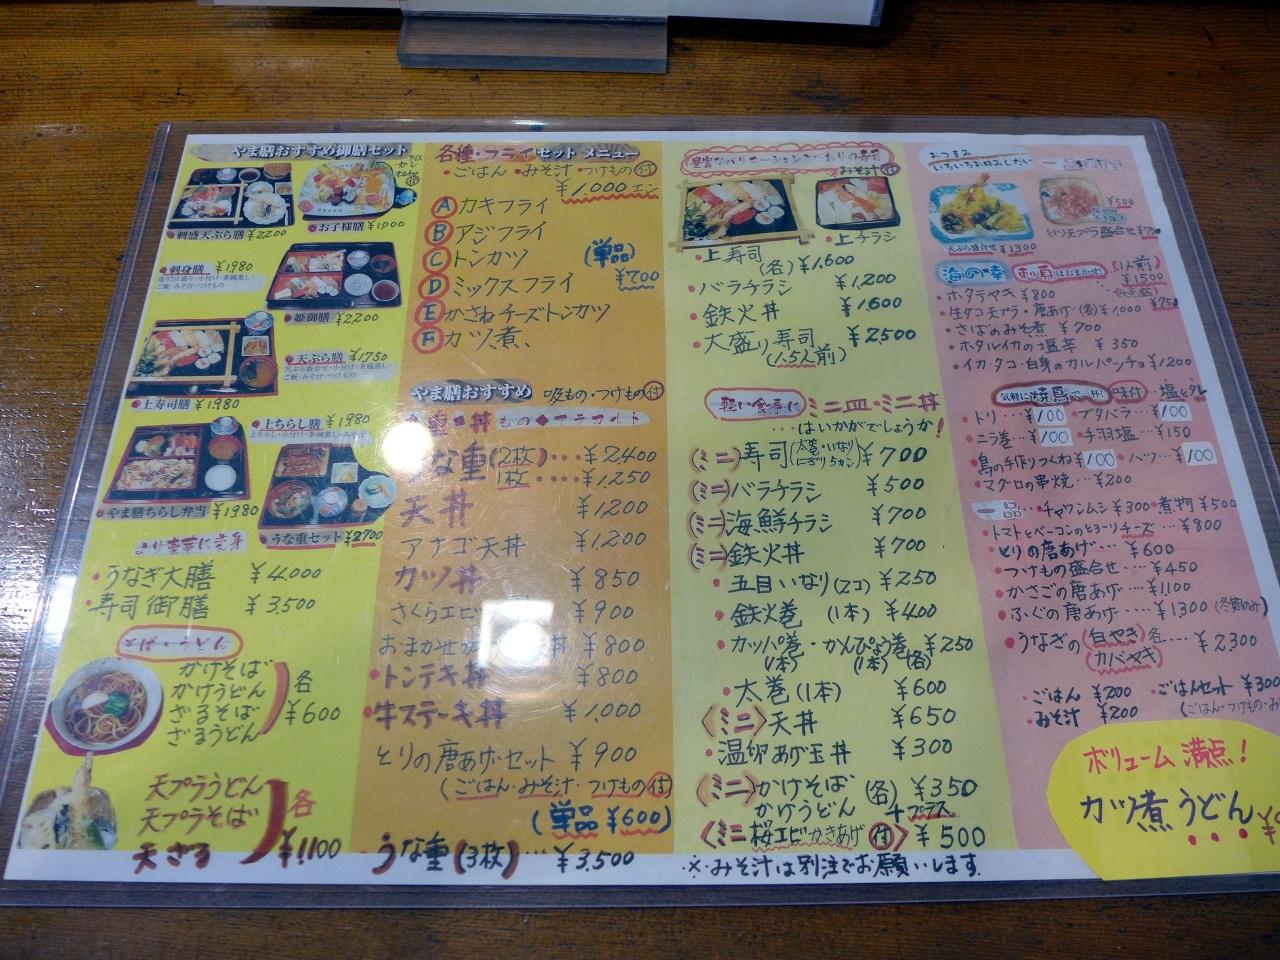 やま膳おすすめ御膳セット
刺盛天ぷら膳 ¥2,200
お子様膳 ¥1,000
刺身膳 ¥1,980
姫御膳 ¥2,200
天ぷら膳 ¥1,750
天ぷら盛合せ・小付け・茶碗蒸し・
ご飯・みそ汁・つけもの
上寿司膳 ¥1,980
上ちらし膳 ¥1,980
上ちらし・小付け・茶碗蒸し・みそ汁
やま膳ちらし弁当 ¥1,980
うなぎ重セット ¥2,700
より豪華に変身
・うなぎ大膳 ¥4,000
・寿司御膳 ¥3,500
かけそば
かけうどん
ざるそば
ざるうどん
各 ¥600
天プラうどん
天プラそば
天ざる
各 ¥1,100
各種・フライセットメニュー
・ごはん・みそ汁・つけもの付
¥1,000エン
Ⓐカキフライ
Ⓑアジフライ
Ⓒトンカツ
Ⓓミックスフライ
Ⓔかさねチーズトンカツ
Ⓕカツ煮
(単品)
¥700
やま膳おすすめ 吸もの・つけもの付
重・丼もの◆アラカルト
うな重(2枚)・・・¥2,400
1枚・・・・¥1,250
天丼 ¥1,200
アナゴ天丼 ¥1,200
カツ丼 ¥850
さくらエビ ¥900
おまかせ 丼 ¥800
・トンテキ丼 ¥800
・牛ステーキ丼 ¥1,000
とりの唐あげ・セット ¥900
(ごはん・みそ汁・つけもの付)
(単品¥600)
うな重(3枚)・・・¥3,500
豊富なバリエーションこだわりの寿司
みそ汁付
・上寿司
・上チラシ
(各)¥1,600
・バラチラシ ¥1,200
・鉄火丼 ¥1,600
・大盛り寿司 ¥2,500
(1.5人前)
軽い食事に ミニ皿・ミニ丼
・・・はいかがでしょうか!
(ミニ)寿司(太巻・いなり にぎり5カン) ¥700
(ミニ)バラチラシ ¥500
(ミニ)海鮮チラシ ¥700
(ミニ)鉄火丼 ¥700
・五目いなり(2コ) ¥250
・鉄火巻(1本) ¥400
・カッパ巻・かんぴょう巻 ¥250
(1本) (1本) (各)
・太巻(1本) ¥600
〈ミニ〉天丼 ¥650
・温卵あげ玉丼 ¥300
〈ミニ〉かけそば
かけうどん
(各) ¥350
+プラス
〈ミニ桜エビかきあげ付〉 ¥500
※・みそ汁は別注でお願いします。
おつまみ
いろいろお好みしだい
天ぷら盛合せ ¥1300
¥500
海の幸 刺身はおまかせ!
(1人前)
¥1500
¥750
・ホタテヤキ ¥800
・生タコ天プラ・唐あげ(各)¥1,000
・さばのみそ煮 ¥700
・ホタルイカの塩辛 ¥350
・イカ・タコ・白身のカルパッチョ ¥1,200
気軽に焼鳥で一杯! 味付 塩とタレ
・トリ・・・¥100 ・ブタバラ・・¥100
・ニラ巻・・¥100 ・手羽塩・・¥150
・鳥の手作りつくね¥100 ・ハツ・・¥100
・マグロの串焼・・・¥200
一品・・チャワンムシ ¥300・煮物 ¥500
・トマトとベーコンのとろ〜りチーズ・・¥800
・とりの唐あげ・・・¥600
・つけもの盛合せ・・・¥450
・かさごの唐あげ・・・・¥1100
・ふぐの唐あげ・・・・¥1300(冬期のみ)
・うなぎの(白やき カバヤキ)各・・・・¥2,300
・ごはん ¥200 ・ごはんセット ¥300
・みそ汁 ¥200 (ごはん・つけもの・み
ボリューム満点!
カツ煮うどん